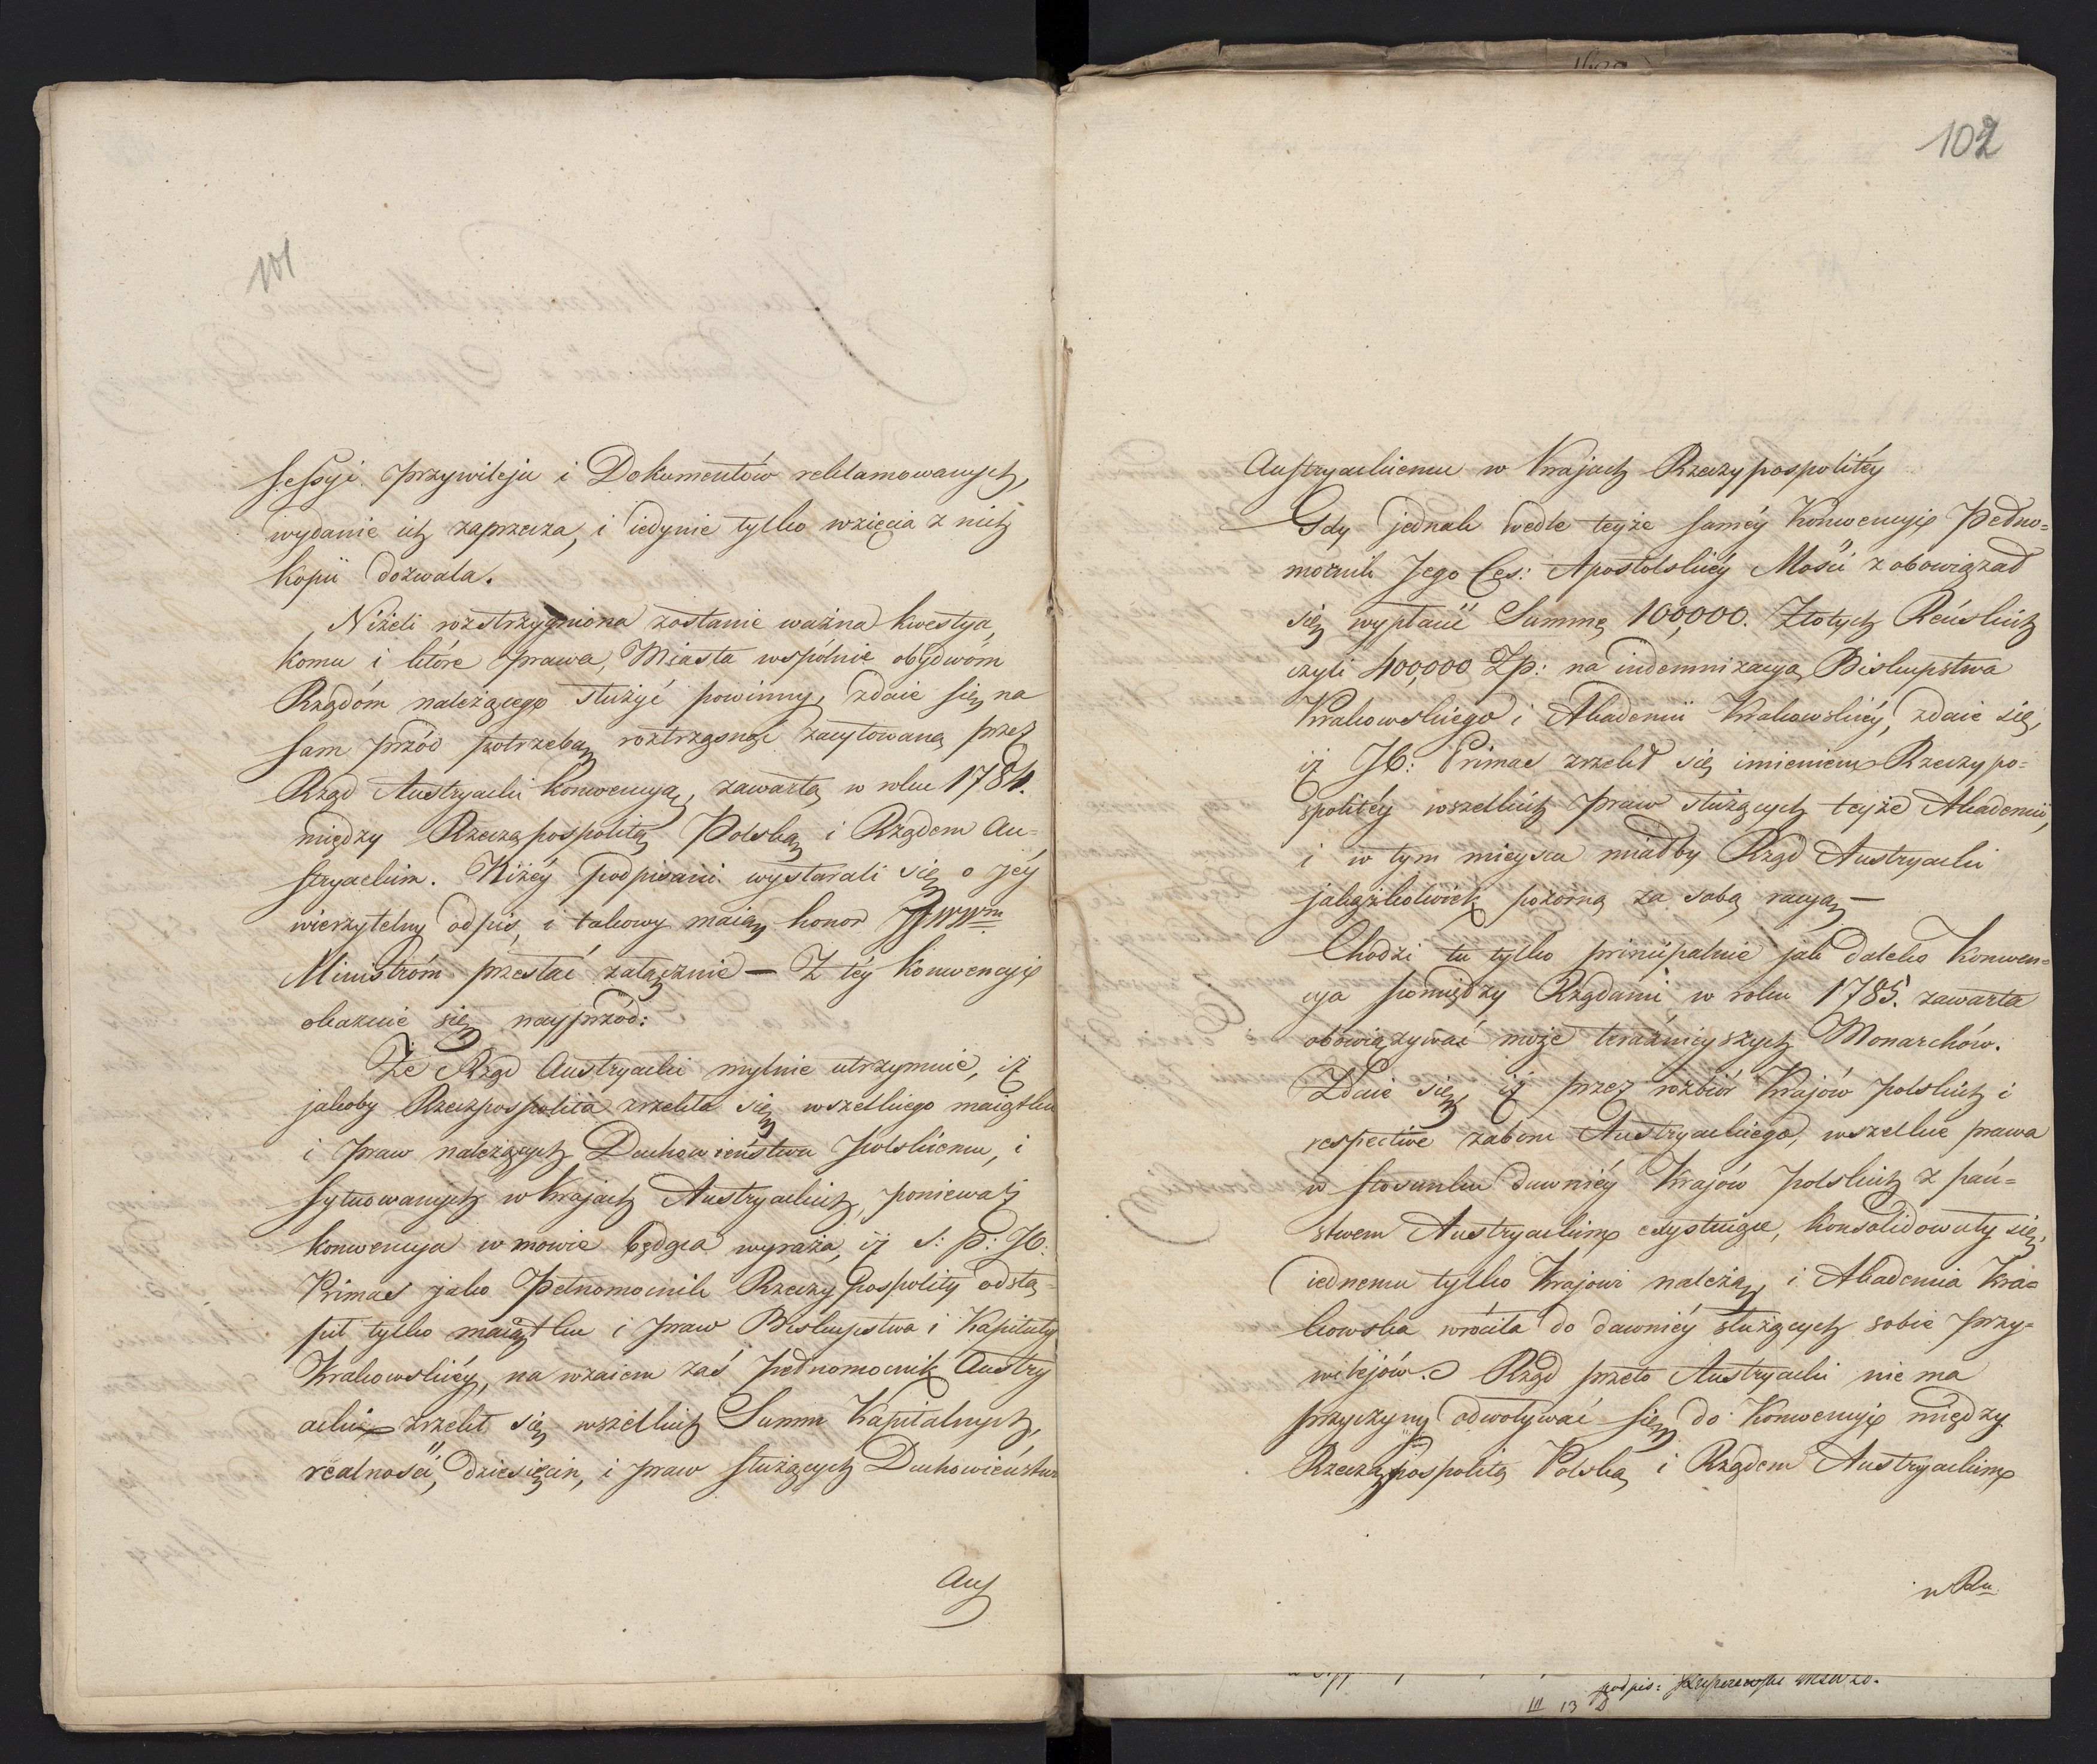 101
sessyi przywileju i Dokumentów reklamowanych,
wydanie ich zaprzecza, i iedynie tylko wzięcia z nich
kopii dozwala.
Niżeli rozstrzygniona zostanie ważna kwestya,
komu i które prawa, Miasta wspólnie obydwóm
Rządóm należącego służyć powinny, zdaie się na
sam przód potrzebą roztrząsnąć zacytowaną przez
Rząd Austryacki Konwencyą, zawartą w roku 1784.
między Rzecząpospolitą Polską i Rządem Au=
stryackim. Niżéy podpisani wystarali się o jéy
wierzytelny odpis, i takowy maią honor JJWWm
Ministróm przesłać załącznie — Z téy Konwencyi
okazuie się nayprzód:
Że Rząd Austryacki mylnie utrzymuie, iż
jakoby Rzeczpospolita zrzekła się wszelkiego maiątku
i praw należących Duchowieństwu Polskiemu, i
sytuowanych w Krajach Austryackich, ponieważ
konwencya w mowie będąca wyraża, iż ś: p: X:
Primas jako Pełnomocnik Rzeczypospolity odstą=
pił tylko maiątku i praw Biskupstwa i Kapituły
Krakowskiéy, na wzaiem zaś pełnomocnik Austry
acki zrzekł się wszelkich Summ Kapitalnych,
realności, dziesięcin, i praw służących Duchowieństwu
Aus
102
Austryackiemu w Krajach Rzeczypospolitéy
Gdy jednak wedle teyże saméy Konwencyi Pełno=
mocnik Jego Ces: Apostolskiéy Mości zobowiązał
się wypłacić Summę 100,000. Złotych Reńskich
czyli 400,000 Zp: na indemnizacyą Biskupstwa
Krakowskiego i Akademii Krakowskiéy, zdaie się,
iż X: Primas zrzekł się imieniem Rzeczypo=
spolitéy wszelkich praw służących teyże Akademii,
i w tym mieyscu miałby Rząd Austryacki
jakążkolwiek pozorną za sobą racyą —
Chodzi tu tylko principalnie jak daleko Konwen=
cya pomiędzy Rządami w roku 1785. zawarta
obowiązywać może teraźnieyszych Monarchów.
Zdaie się, iż przez rozbiór Krajów polskich i
respective zaboru Austryackiego, wszelkie prawa
w stosunku dawniéy Krajów polskich z pań=
stwem Austryackim exystuiące, konsolidowały się,
iednemu tylko Krajowi należą, i Akademia Kra=
kowska wróciła do dawniéy służących sobie przy=
wilejów. Rząd przeto Austryacki nie ma
przyczyny odwoływać się do Konwencyi między
Rzecząpospolitą Polską i Rządem Austryackim
w Ru
podpis:
III 13